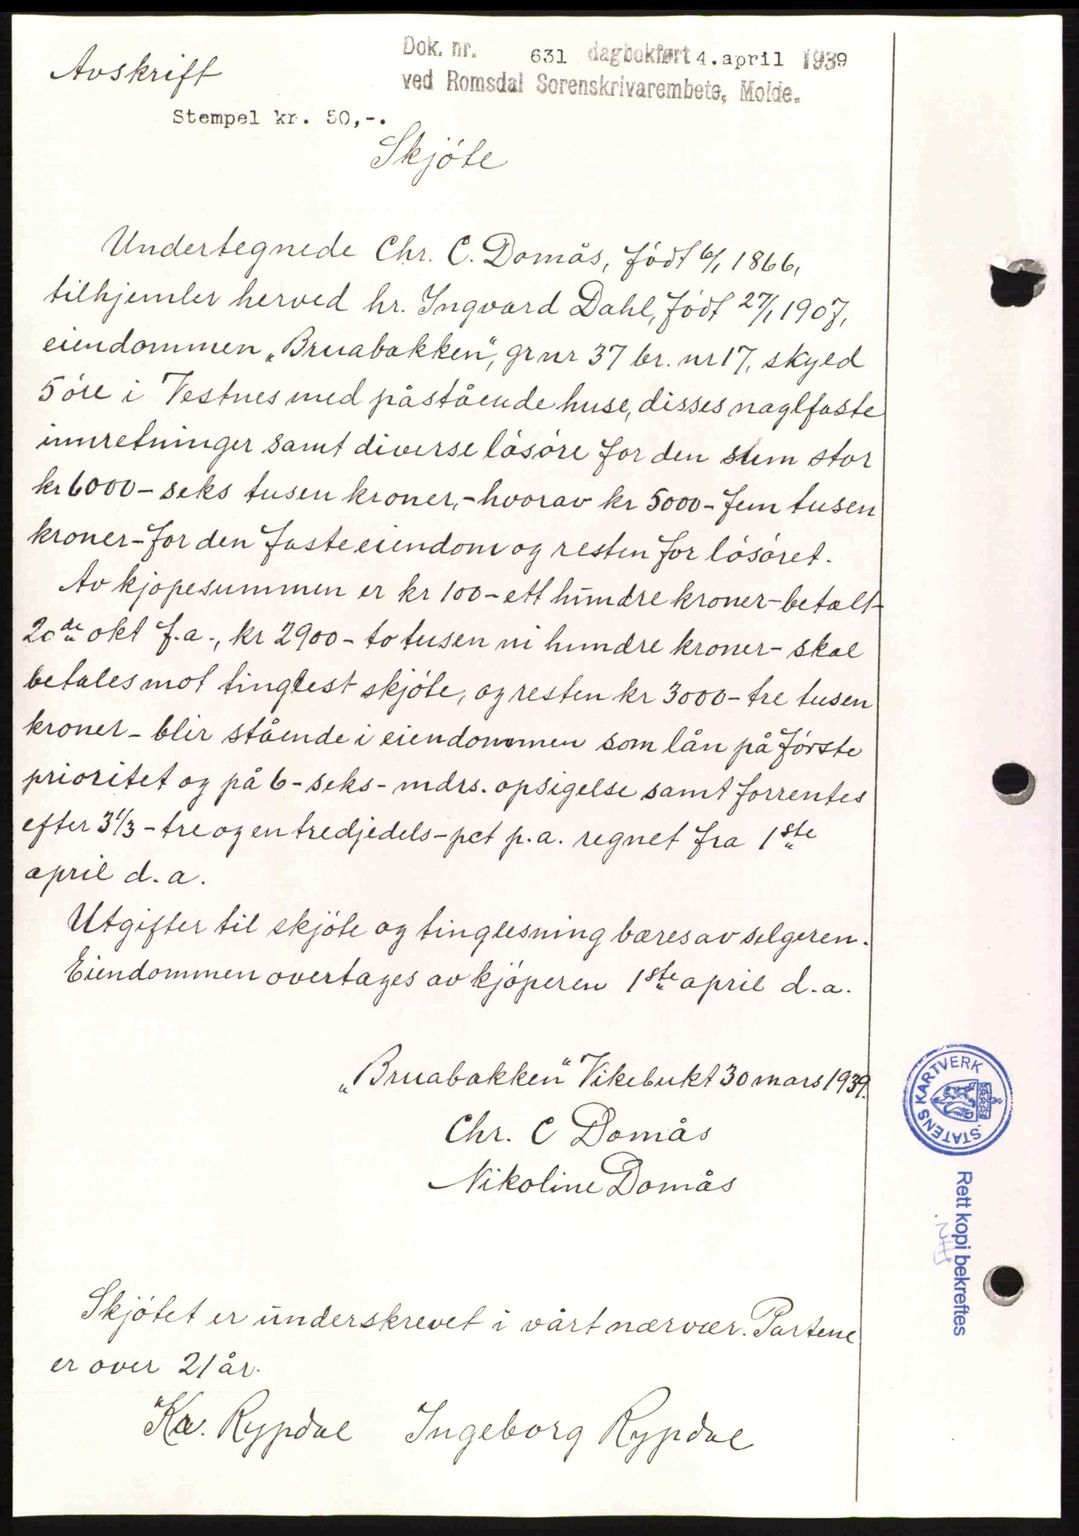 Avskrift
Dok. nr. 631 dagbokført 4. april 1939
ved Romsdal Sorenskrivarembete, Molde.
Stempel kr. 50,-.
Skjöte
Undertegnede Chr. C. Domås, född 6/1 1866,
tilhjemler herved hr. Ingvard Dahl, födt 27/1 1907,
eiendommen „Bruabakken“, gr nr 37 br. nr 17, skyld
5 öre i Vestnes med påstående huse, disses naglfaste
innretninger samt diverse lösöre for den sum stor
kr 6000 – seks tusen kroner, – hvorav kr 5000 – fem tusen
kroner – for den faste eiendom og resten for lösöret.
Av kjöpesummen er kr 100 – ett hundre kroner – betalt
20de okt f.a., kr 2900 – to tusen ni hundre kroner – skal
betales mot tinglest skjöte, og resten kr 3000 – tre tusen
kroner – blir stående i eiendommen som lån på förste
prioritet og på 6 – seks – mdrs. opsigelse samt forrentes
efter 3 1/3 – tre og en tredjedels – pct p.a. regnet fra 1ste
april d.a.
Utgifter til skjöte og tinglesning bæres av selgeren.
Eiendommen overtages av kjöperen 1ste april d.a.
„Bruabakken“ Vikebukt 30 mars 1939.
Chr. C Domås
Nikoline Domås
Skjötet er underskrevet i vårt nærvær. Partene
er over 21 år.
Kr. Rypdal Ingeborg Rypdal
STATENS KARTVERK
Rett kopi bekreftes